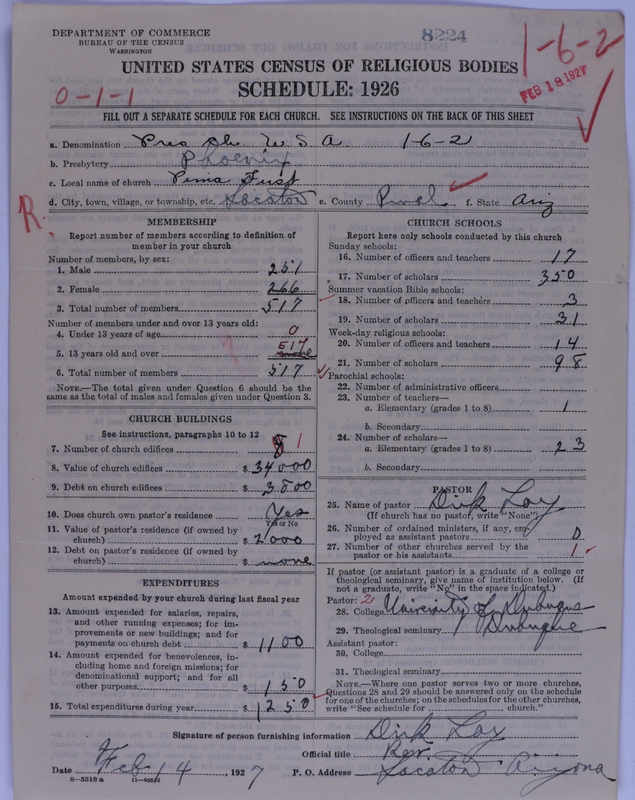 DEPARTMENT OF COMMERCE
BUREAU OF THE CENSUS
WASHINGTON
8224
1-6-2
UNITED STATES CENSUS OF RELIGIOUS BODIES
FEB 18 1927
SCHEDULE: 1926
0-1-1
FILL OUT A SEPARATE SCHEDULE FOR EACH CHURCH. SEE INSTRUCTIONS ON THE BACK OF THIS SHEET
a. Denomination Pres Ch. U S A. 1-6-2
b. Presbytery Phoenix
c. Local name of church Pima First
d. City, town, village, or township, etc. Sacaton e. County Pinal f. State Ariz
R.
MEMBERSHIP
Report number of members according to definition of member in your church
Number of members, by sex:
1. Male 251
2. Female 266
3. Total number of members 517
Number of members under and over 13 years old:
4. Under 13 years of age 0
5. 13 years old and over 517 none
6. Total number of members 517
NOTE.—The total given under Question 6 should be the same as the total of males and females given under Question 3.
CHURCH BUILDINGS
See instructions, paragraphs 10 to 12
7. Number of church edifices 8 1
8. Value of church edifices $ 34000
9. Debt on church edifices $ 3800
10. Does church own pastor's residence Yes
Yes or No
11. Value of pastor's residence (if owned by church) $ 2000
12. Debt on pastor's residence (if owned by church) $ none
EXPENDITURES
Amount expended by your church during last fiscal year
13. Amount expended for salaries, repairs, and other running expenses; for improvements or new buildings; and for payments on church debt $ 1100
14. Amount expended for benevolences, including home and foreign missions; for denominational support; and for all other purposes $ 150
15. Total expenditures during year $ 1250
CHURCH SCHOOLS
Report here only schools conducted by this church
Sunday schools:
16. Number of officers and teachers 17
17. Number of scholars 350
Summer vacation Bible schools:
18. Number of officers and teachers 3
19. Number of scholars 31
Week-day religious schools:
20. Number of officers and teachers 14
21. Number of scholars 98
Parochial schools:
22. Number of administrative officers
23. Number of teachers—
a. Elementary (grades 1 to 8) 1
b. Secondary
24. Number of scholars—
a. Elementary (grades 1 to 8) 23
b. Secondary
PASTOR
25. Name of pastor Dirk Lay
(If church has no pastor, write "None")
26. Number of ordained ministers, if any, employed as assistant pastors 0
27. Number of other churches served by the pastor or his assistants 1
If pastor (or assistant pastor) is a graduate of a college or theological seminary, give name of institution below. (If not a graduate, write "No" in the space indicated.)
Pastor: 2
28. College University of Dubuque
29. Theological seminary " Dubuque
Assistant pastor:
30. College
31. Theological seminary
NOTE.—Where one pastor serves two or more churches, Questions 28 and 29 should be answered only on the schedule for one of the churches; on the schedules for the other churches, write "See schedule for ........ church."
Signature of person furnishing information Dirk Lay
Official title Rev.
Date Feb 14, 1927 P. O. Address Sacaton Arizona
8-5518 a